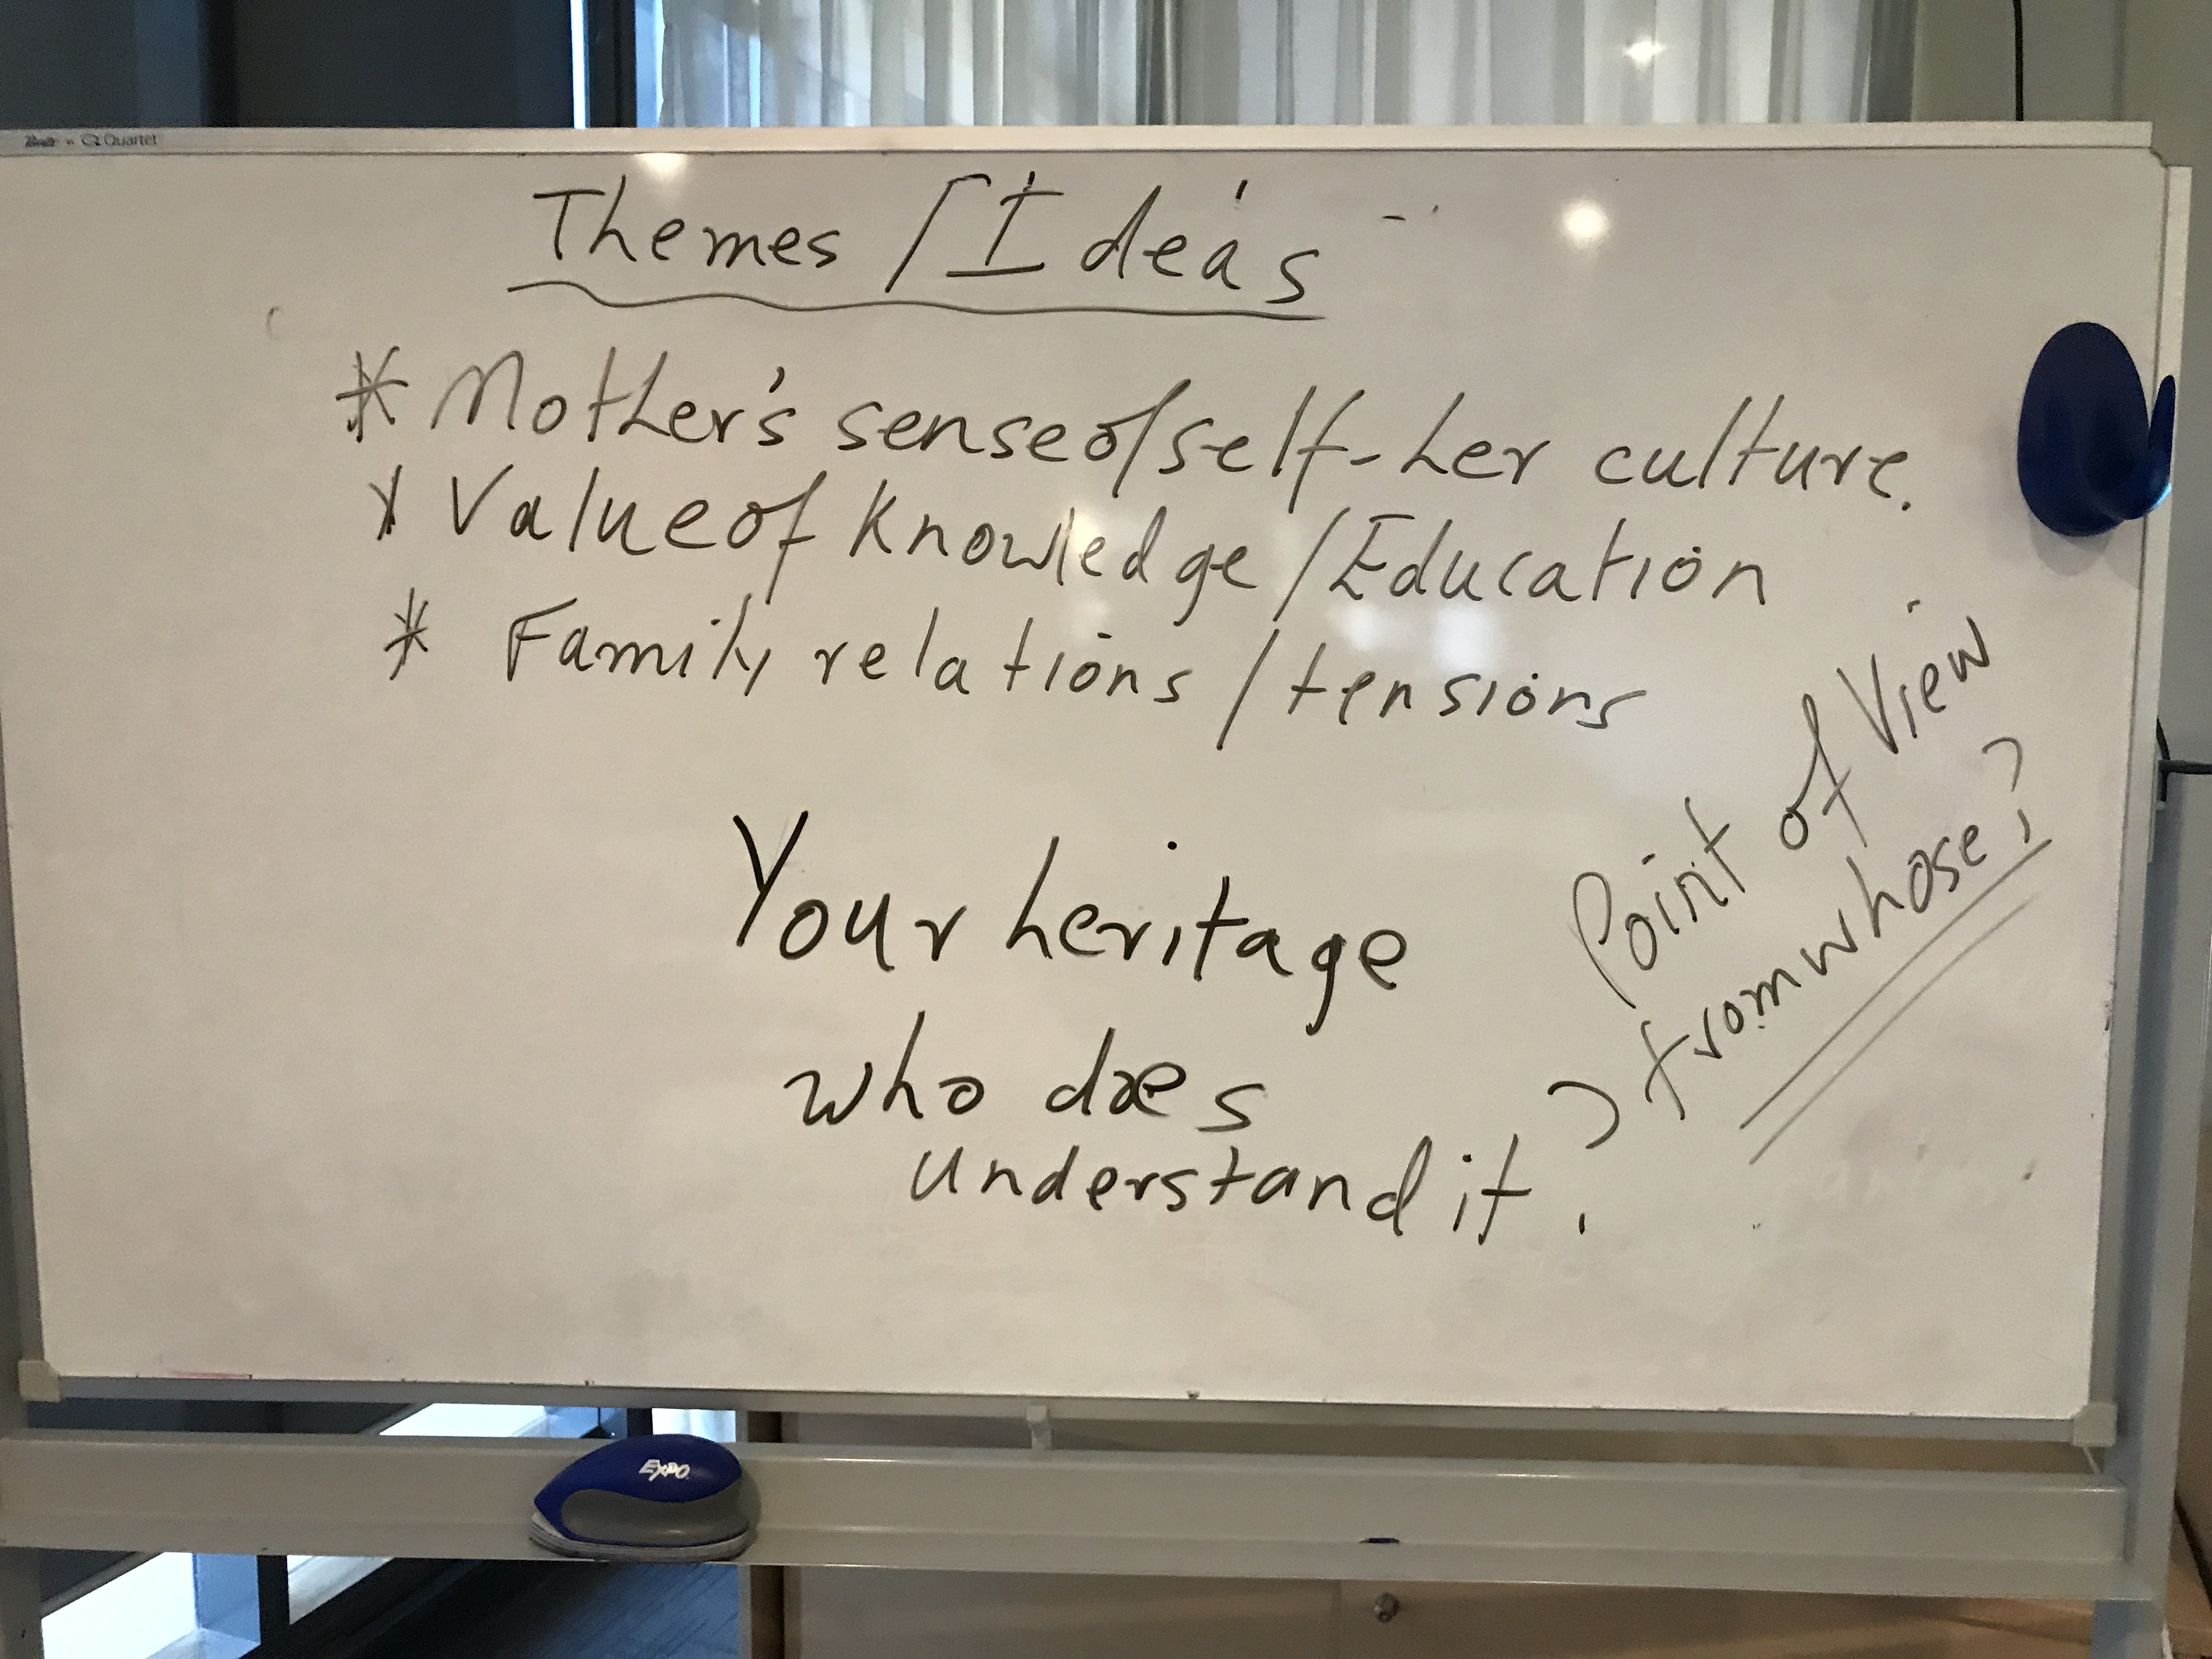 Quartet
Themes / Ideas
* Mother's sense of self - her culture.
* Value of Knowledge / Education
* Family relations / tensions
Point of View
from whose?
Your heritage
who does
understand it?
EXPO